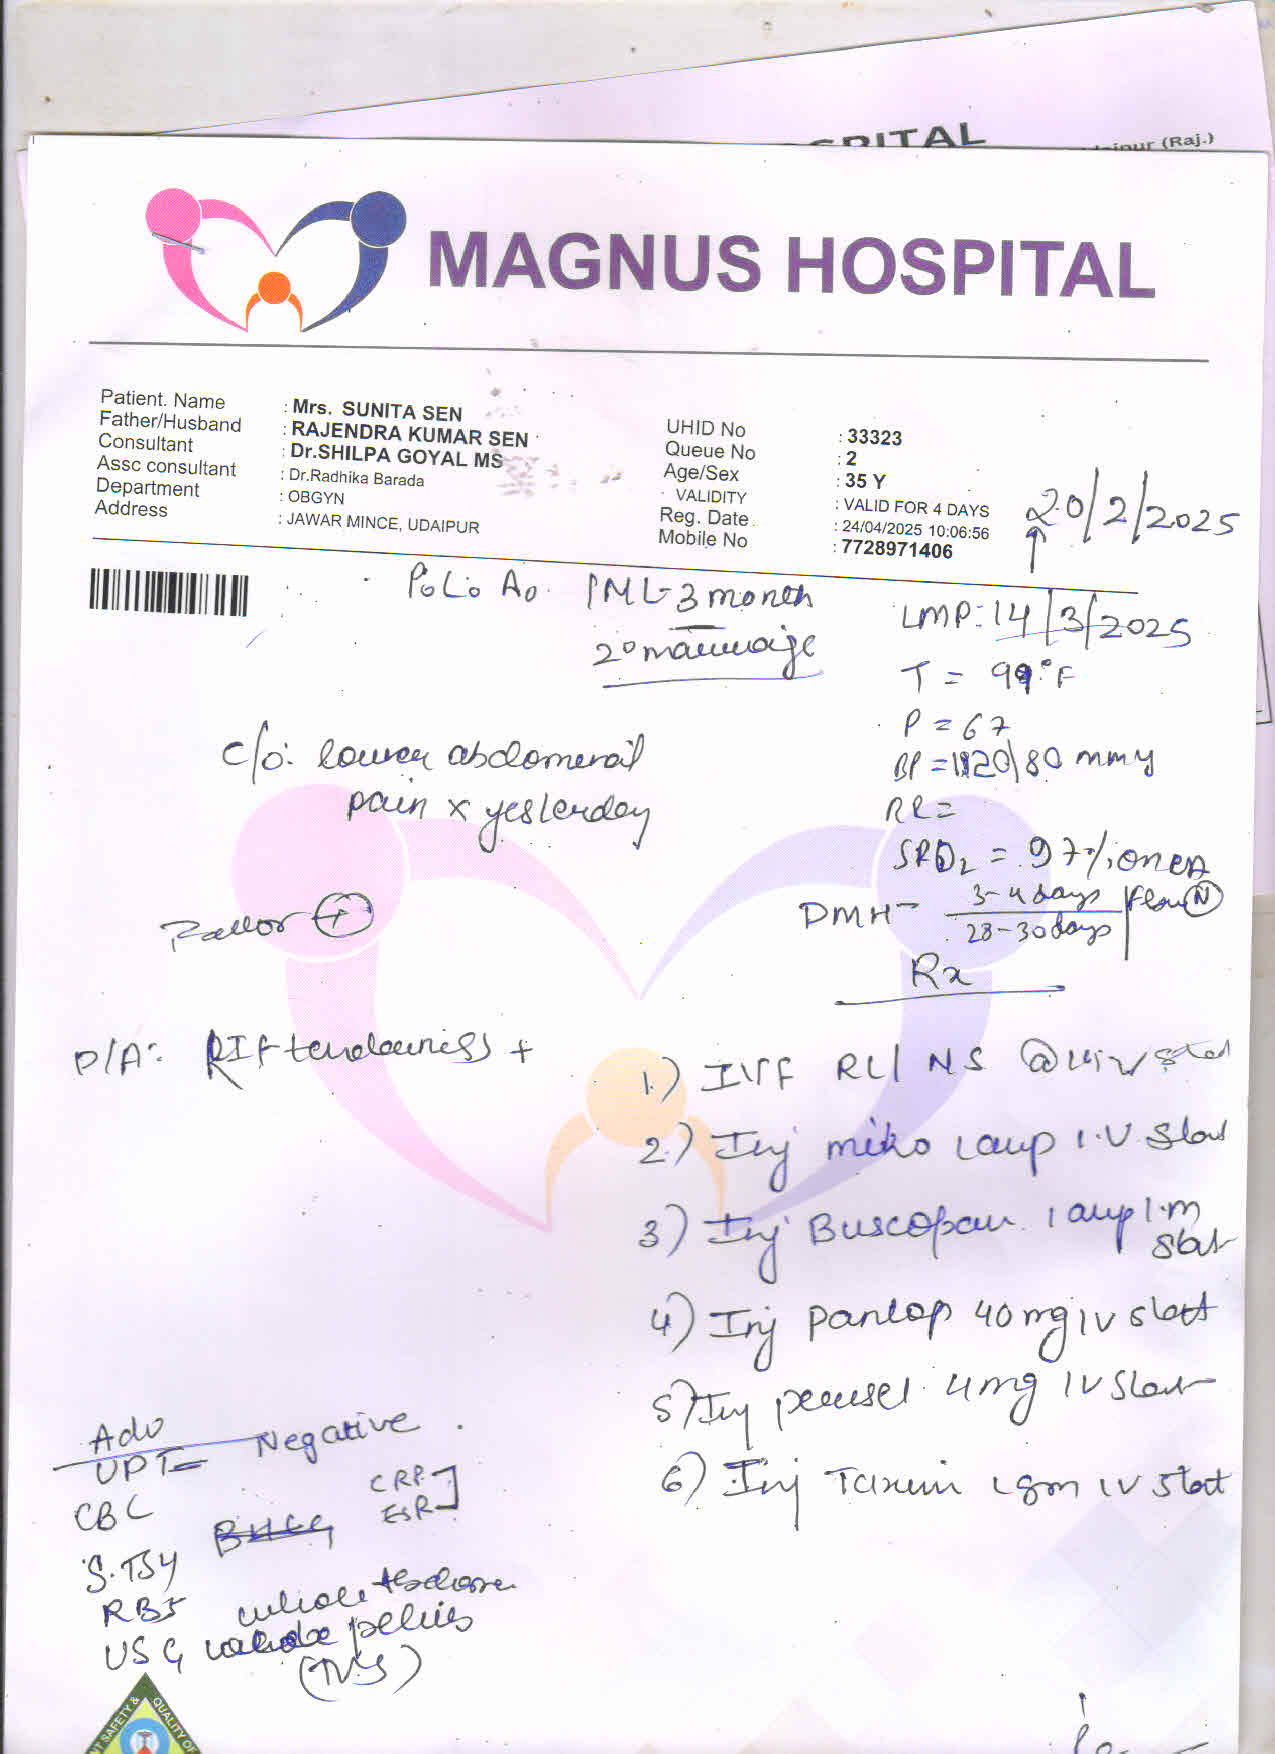 SPITAL
(Raj.)
MAGNUS HOSPITAL
Patient. Name : Mrs. SUNITA SEN
Father/Husband : RAJENDRA KUMAR SEN
Consultant : Dr.SHILPA GOYAL MS
Assc consultant : Dr.Radhika Barada
Department : OBGYN
Address : JAWAR MINCE, UDAIPUR
UHID No : 33323
Queue No : 2
Age/Sex : 35 Y
VALIDITY : VALID FOR 4 DAYS
Reg. Date : 24/04/2025 10:06:56
Mobile No : 7728971406
20/2/2025
↑
P0L0A0 ML-3 month
2° marriage
LMP:- 14/3/2025
T = 99°F
P = 67
BP = 120/80
RR =
SPO2 = 97%
DMH - 3-4 days / 28-30 days | flow N
C/o: lower abdomenal
pain x yesterday
Pallor +
P/A: RIF tenderness +
Rx
1) IVF RL/NS stat
2) Inj 1 amp I.V stat
3) Inj Buscopan 1 amp I.m
stat
4) Inj pantop 40 mg IV stat
5) Inj 4mg IV stat
6) Inj Taxim 1 gm IV stat
Adv
UPT = Negative
CBC CRP
ESR
S.TSH
RBS whole abdomen
USG pelvis
(TVS)
SAFETY & QUALITY OF